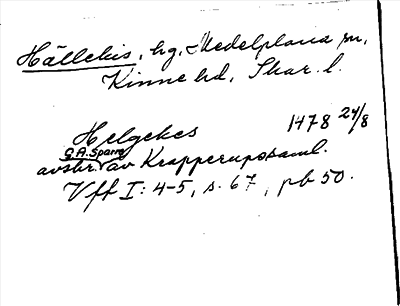 Hällekis, hg, Medelplana sn,
Kinne hd, Skar. l.
Helgekes 1478 24/8
G.A. Sparre
avskr. av Krapperuposaml.
Vff I: 4-5, s. 67, pb 50.